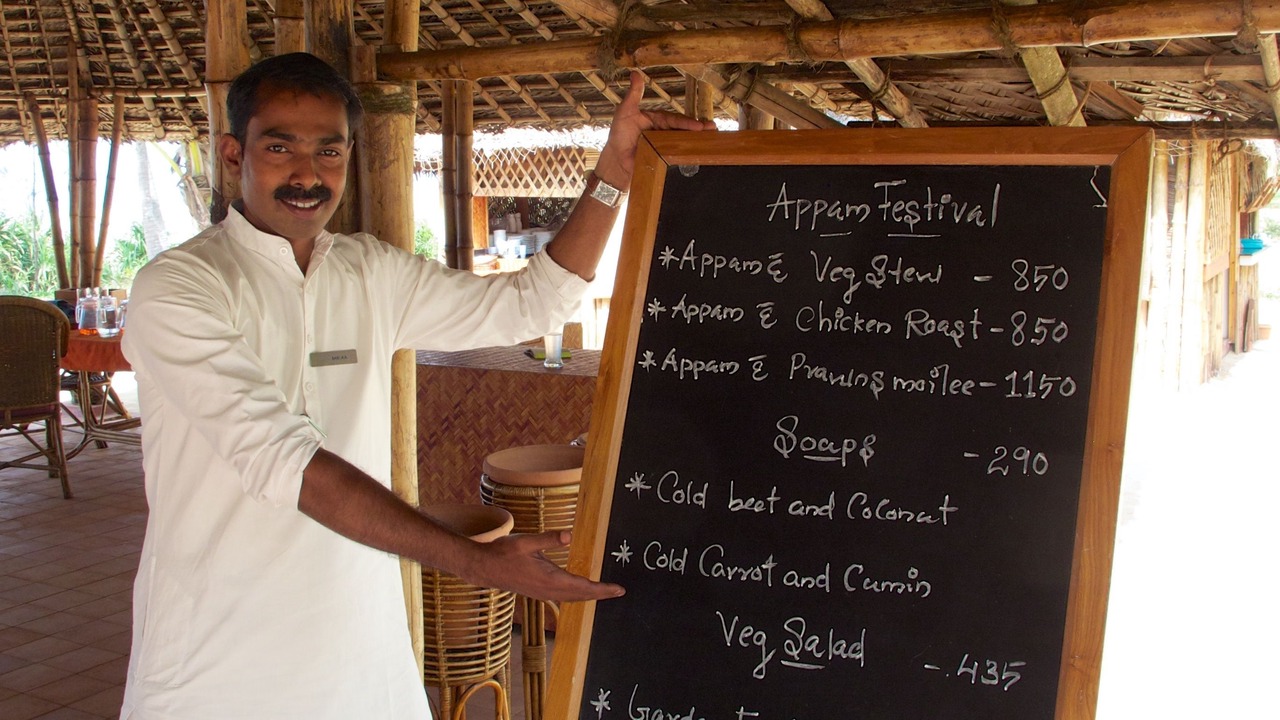 Appam Festival
*Appam & Veg Stew - 850
* Appam & Chicken Roast - 850
* Appam & Prawns moilee - 1150
Soaps - 290
* Cold beet and Coconut
* Cold Carrot and Cumin
Veg Salad - 435
* Garden